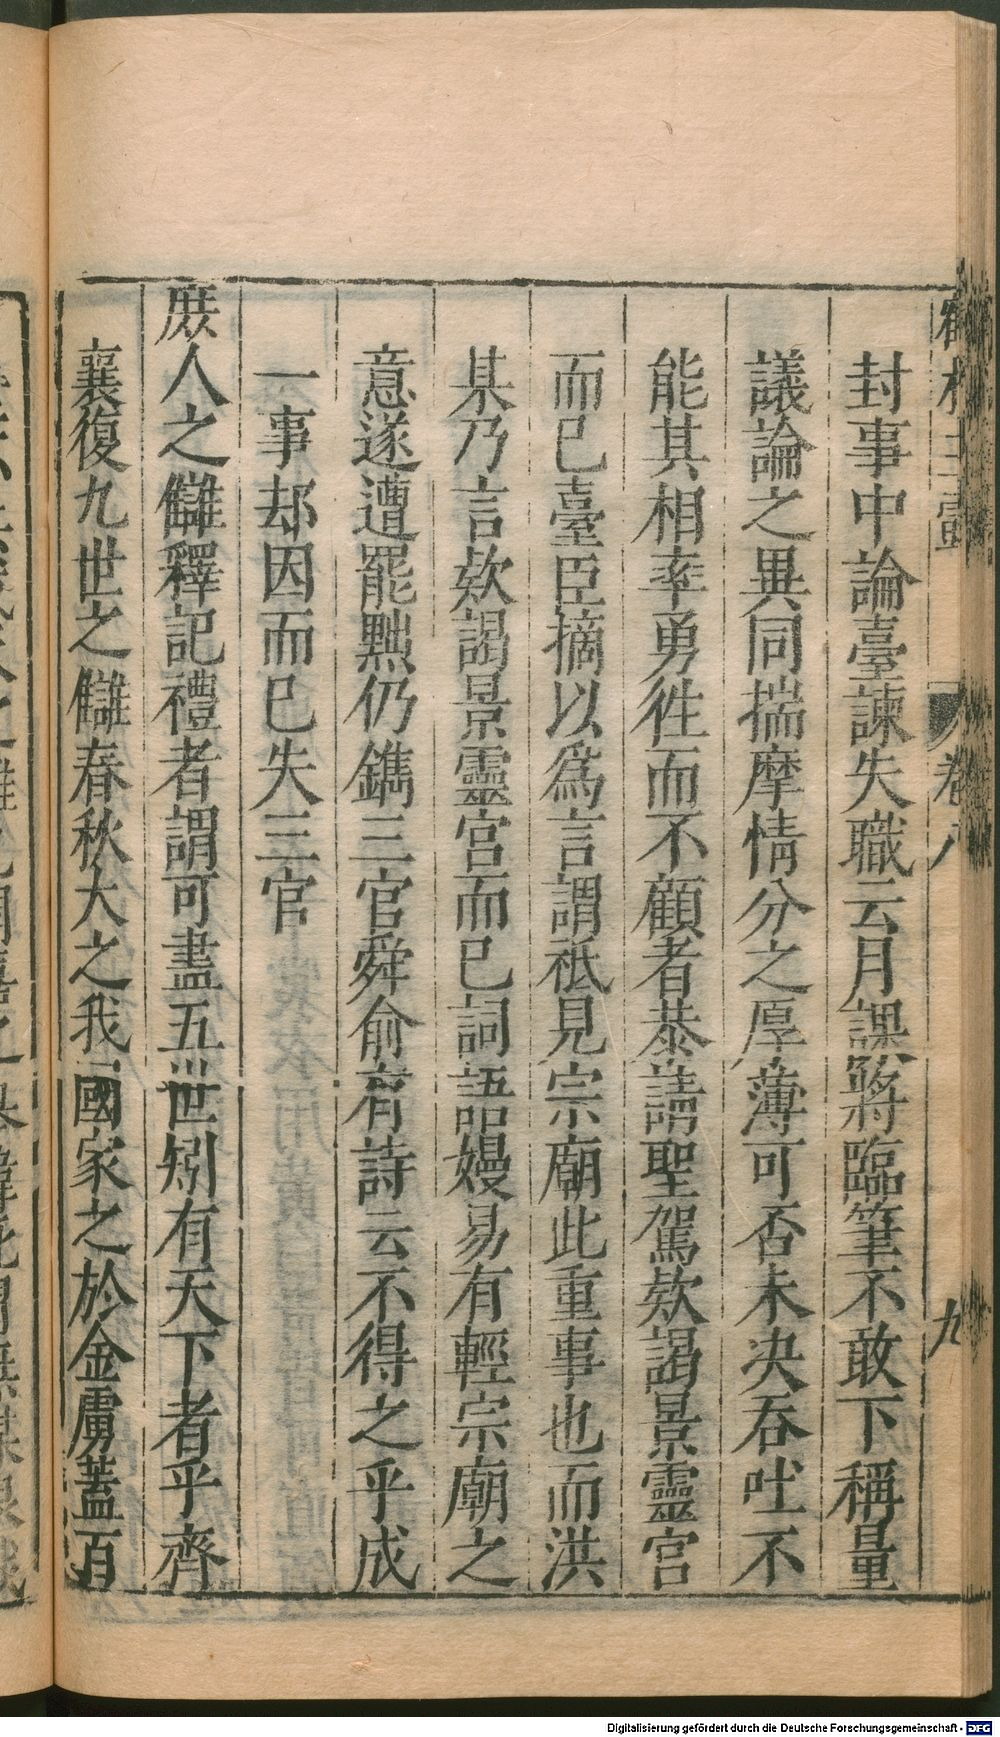 封事中論臺諫失職云月課將臨筆不敢下稱量
議論之異同揣摩情分之厚薄可否未决吞吐不
能其相率勇徃而不顧者恭請聖駕欵謁景靈宮
而已臺臣摘以爲言謂祗見宗廟此重事也而洪
某乃言欵謁景靈宮而已詞語嫚易有輕宗廟之
意遂遭罷黜仍鐫三官舜俞有詩云不得之乎成
一事却因而已失三官
庶人之讎釋記禮者謂可盡五世矧有天下者乎齊
襄復九世之讎春秋大之我國家之於金虜蓋百
卷八
九
Digitalisierung gefördert durch die Deutsche Forschungsgemeinschaft - DFG